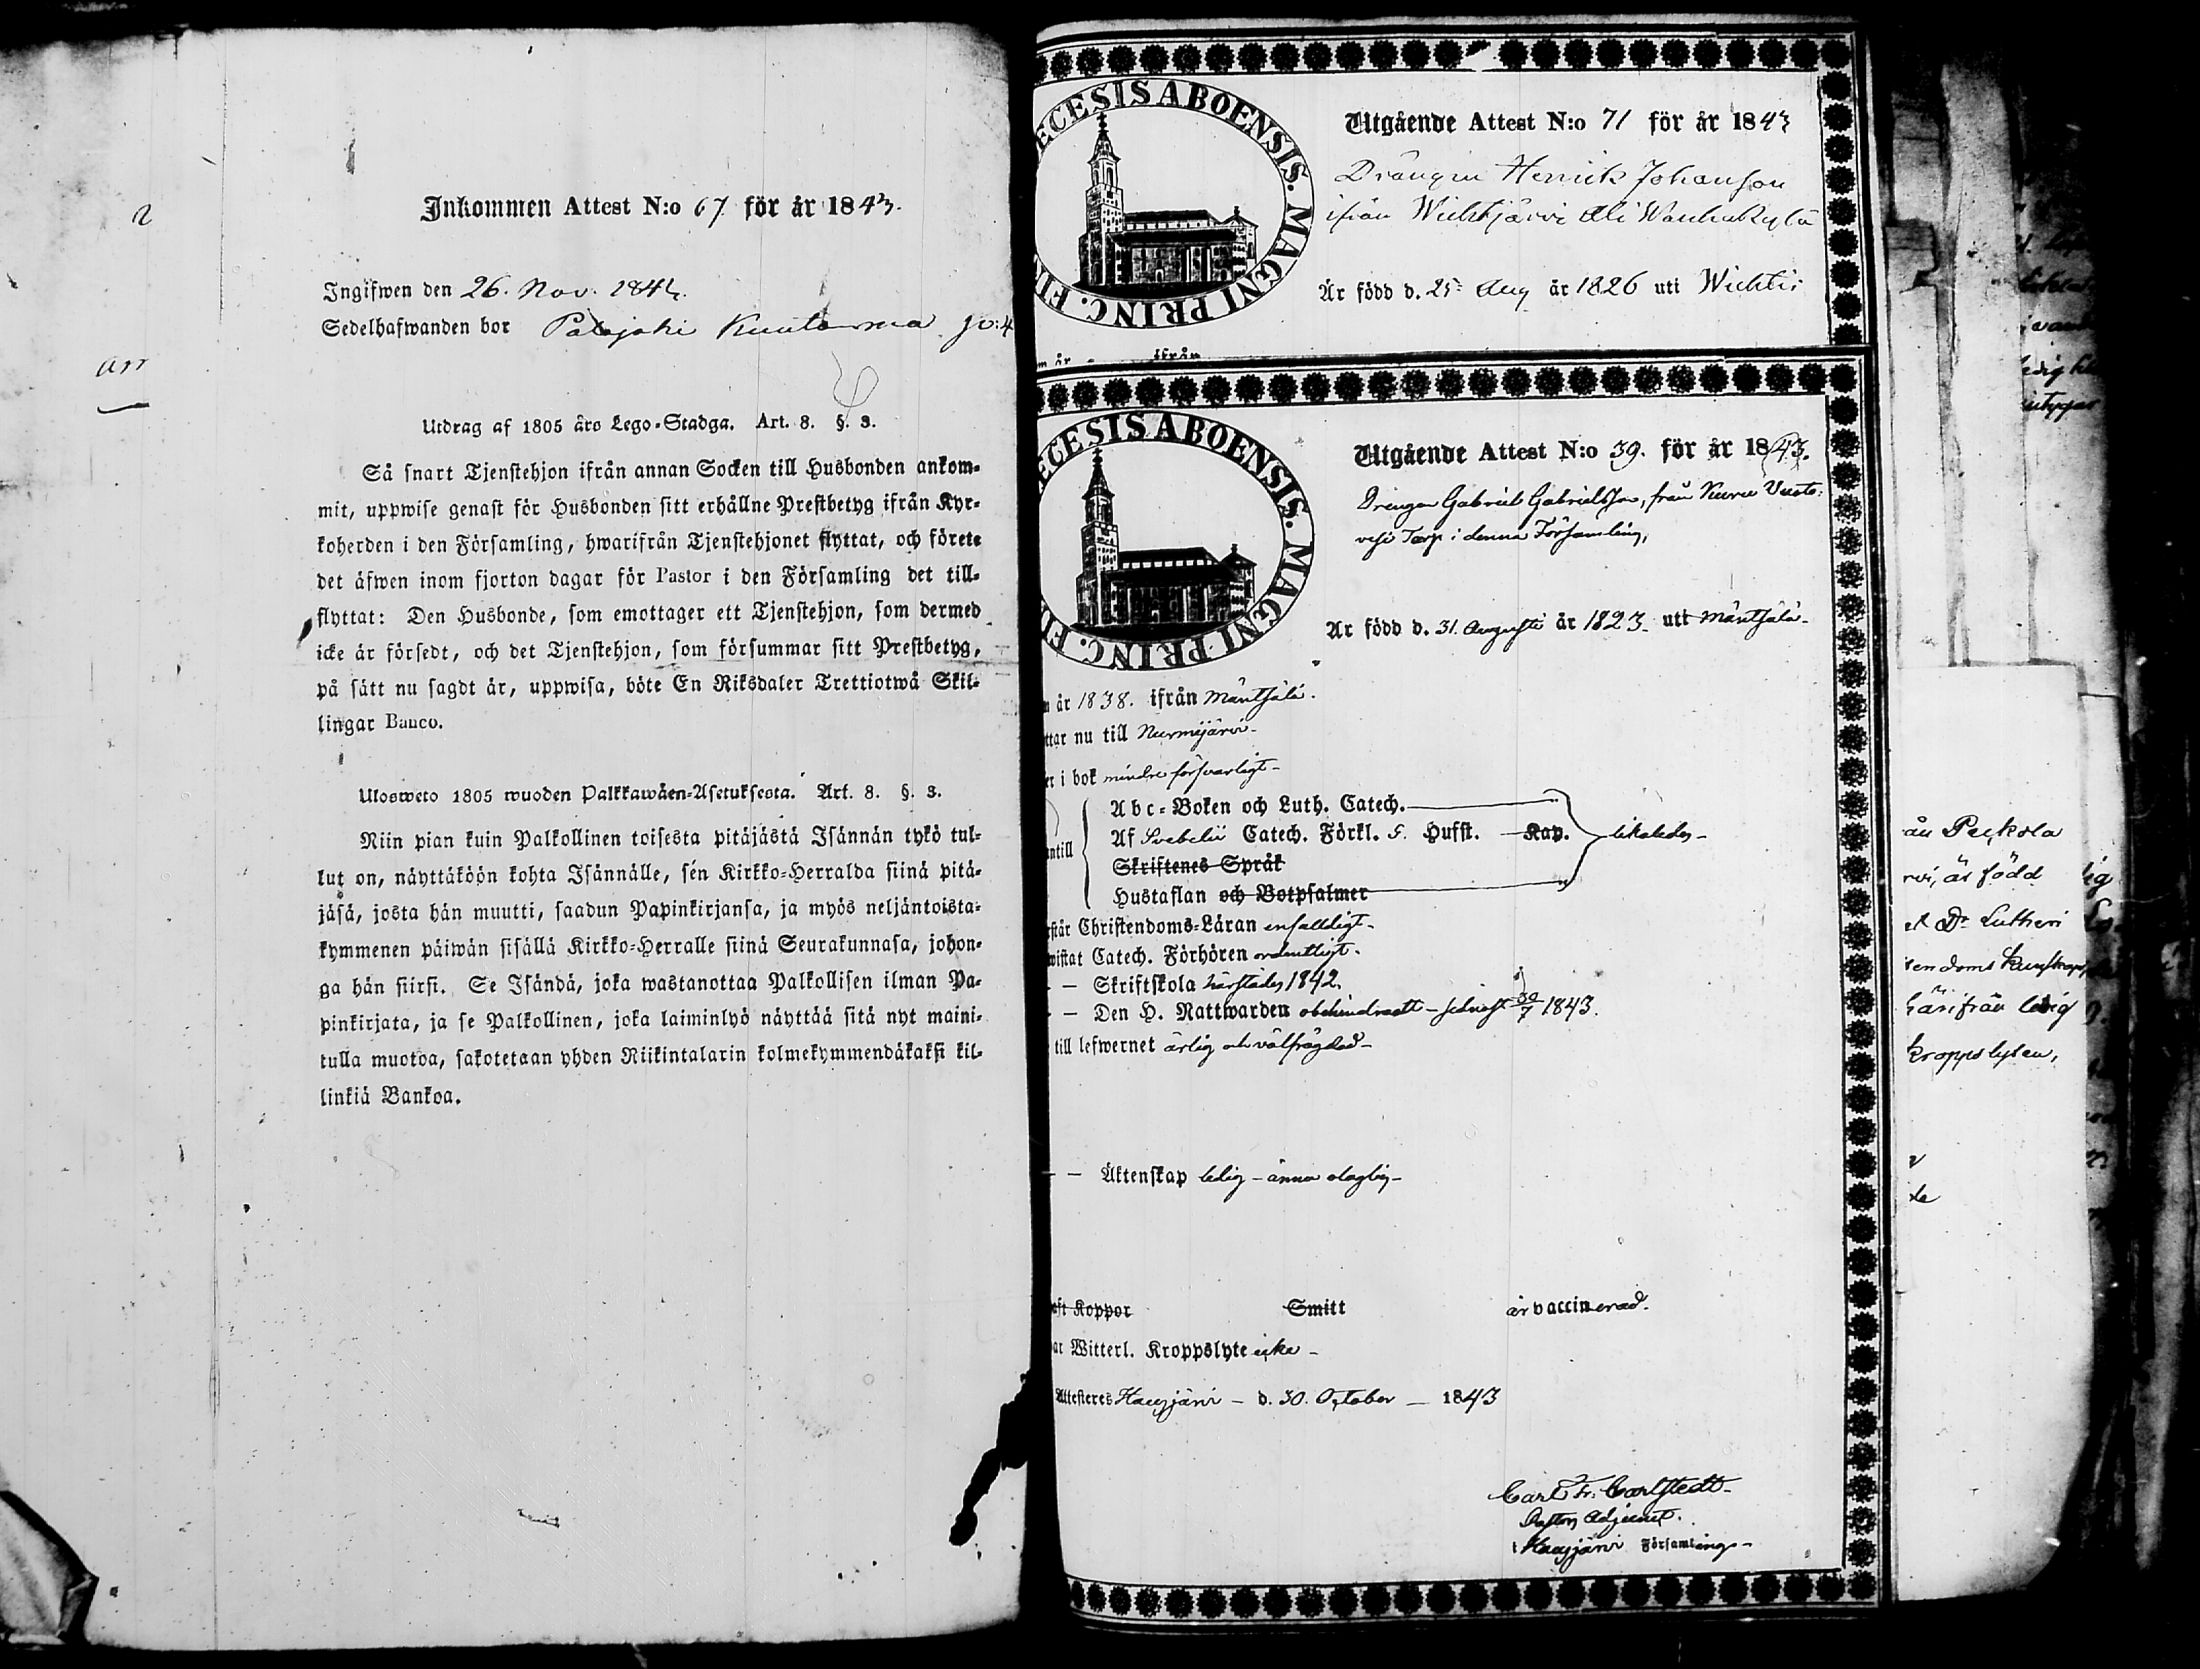 2
arr
Inkommen Attest N:o 67 för år 1843.
Ingifwen den 26. Nov. 184
Sedelhafwanden bor Palojoki
Utdrag af 1805 års Lego-Stadga. Art. 8. §. 3.
Så snart Tjenstehjon ifrån annan Socken till Husbonden ankom-
mit, uppwise genast för Husbonden sitt erhållne Prestbetyg ifrån Kyr-
koherden i den Församling, hwarifrån Tjenstehjonet flyttat, och förete
det äfwen inom fjorton dagar för Pastor i den Församling det till-
flyttat: Den Husbonde, som emottager ett Tjenstehjon, som dermed
icke är försedt, och det Tjenstehjon, som försummar sitt Prestbetyg,
på sätt nu sagdt är, uppwisa, böte En Riksdaler Trettiotwå Skil-
lingar Banco.
Ulosweto 1805 wuoden Palkkawäen-Asetuksesta. Art. 8. §. 3.
Niin pian kuin Palkollinen toisesta pitäjästä Isännän tykö tul-
lut on, näyttäköön kohta Isännälle, sen Kirkko-Herralda siinä pitä-
jäsä, josta hän muutti, saadun Papinkirjansa, ja myös neljäntoista-
kymmenen päiwän sisällä Kirkko-Herralle siinä Seurakunnasa, johon-
ga hän siirsi. Se Isändä, joka wastanottaa Palkollisen ilman Pa-
pinkirjata, ja se Palkollinen, joka laiminlyö näyttää sitä nyt maini-
tulla muotoa, sakotetaan yhden Riikintalarin kolmekymmendäkaksi kil-
linkiä Bankoa.
ECESIS ABOENSIS. MAGNI PRINC. FI
Utgående Attest N:o 71 för år 1843
Drängen Henrik Johansson
ifrån Wichtjärvi Ali Wanhakylä
Är född d. 25 Aug år 1826 uti Wichtis
år ifrån
ECESIS ABOENSIS. MAGNI PRINC. FI
Utgående Attest N:o 39. för år 1843.
Drengen Gabriel Gabrielsson, från
Torp i denna Församling,
Är född d. 31. Augusti år 1823. uti Mäntsälä-
år 1838. ifrån Mäntsälä.
ttar nu till Nurmijärvi-
i bok mindre försvarligt-
Abc-Boken och Luth. Catech.
Af Svebelii Catech. Förkl. 5. Hufst. Kap. likaledes-
antill
Skriftenes Språk
Hustaflan och Botpsalmer
rstår Christendoms-Läran enfalldigt-
wistat Catech. Förhören ordentligt.
- Skriftskola härstädes 1842.
- Den H. Nattwarden obehindradt - sednast 30/7 1843.
till lefwernet ärlig och välfrägdad-
- Äktenskap ledig - ännu olaglig-
Koppor Smitt är vaccinerad.
ar Witterl. Kroppslyte icke -
Attesteres Hausjärvi - d. 30. October - 1843
Carl Fr. Carlstedt-
Pastors Adjunct.
i Hausjärvi Församlings-
ån Peckola
rvi, är född
et Dr Lutheri
härifrån ledig
kroppslyten,